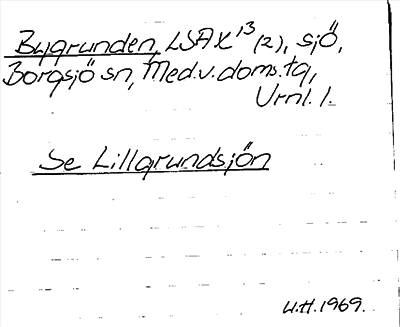 Bygrunden, LSA X 13 (2), sjö,
Borgsjö sn, Med.v.doms.tg,
Urnl. 1.
Se Lillgrundsjön
U.H. 1969.